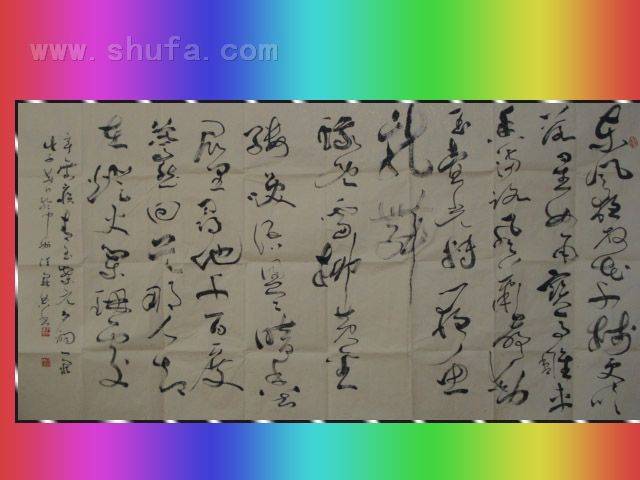 www.shufa.com
东风夜放花千树更吹
落星如雨寶马雕车
香满路凤箫声动
玉壶光转一夜鱼
龙舞
蛾儿雪柳黄金
缕笑语盈盈暗香去
众里寻他千百度
蓦然回首那人却
在灯火阑珊处
辛弃疾青玉案元夕词一首
戊子